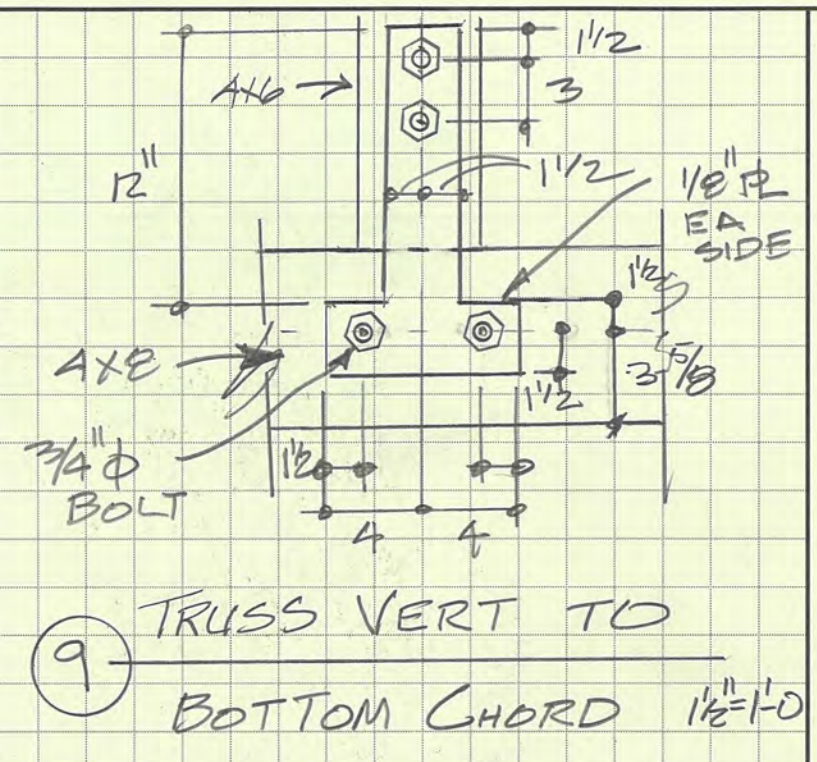 1 1/2
4x6
3
12"
1 1/2
1/8" PL
EA
SIDE
1 1/2
4x8
3 5/8
1 1/2
3/4" φ
BOLT
1 1/2
4 4
9
TRUSS VERT TO
BOTTOM CHORD
1 1/2"=1'-0